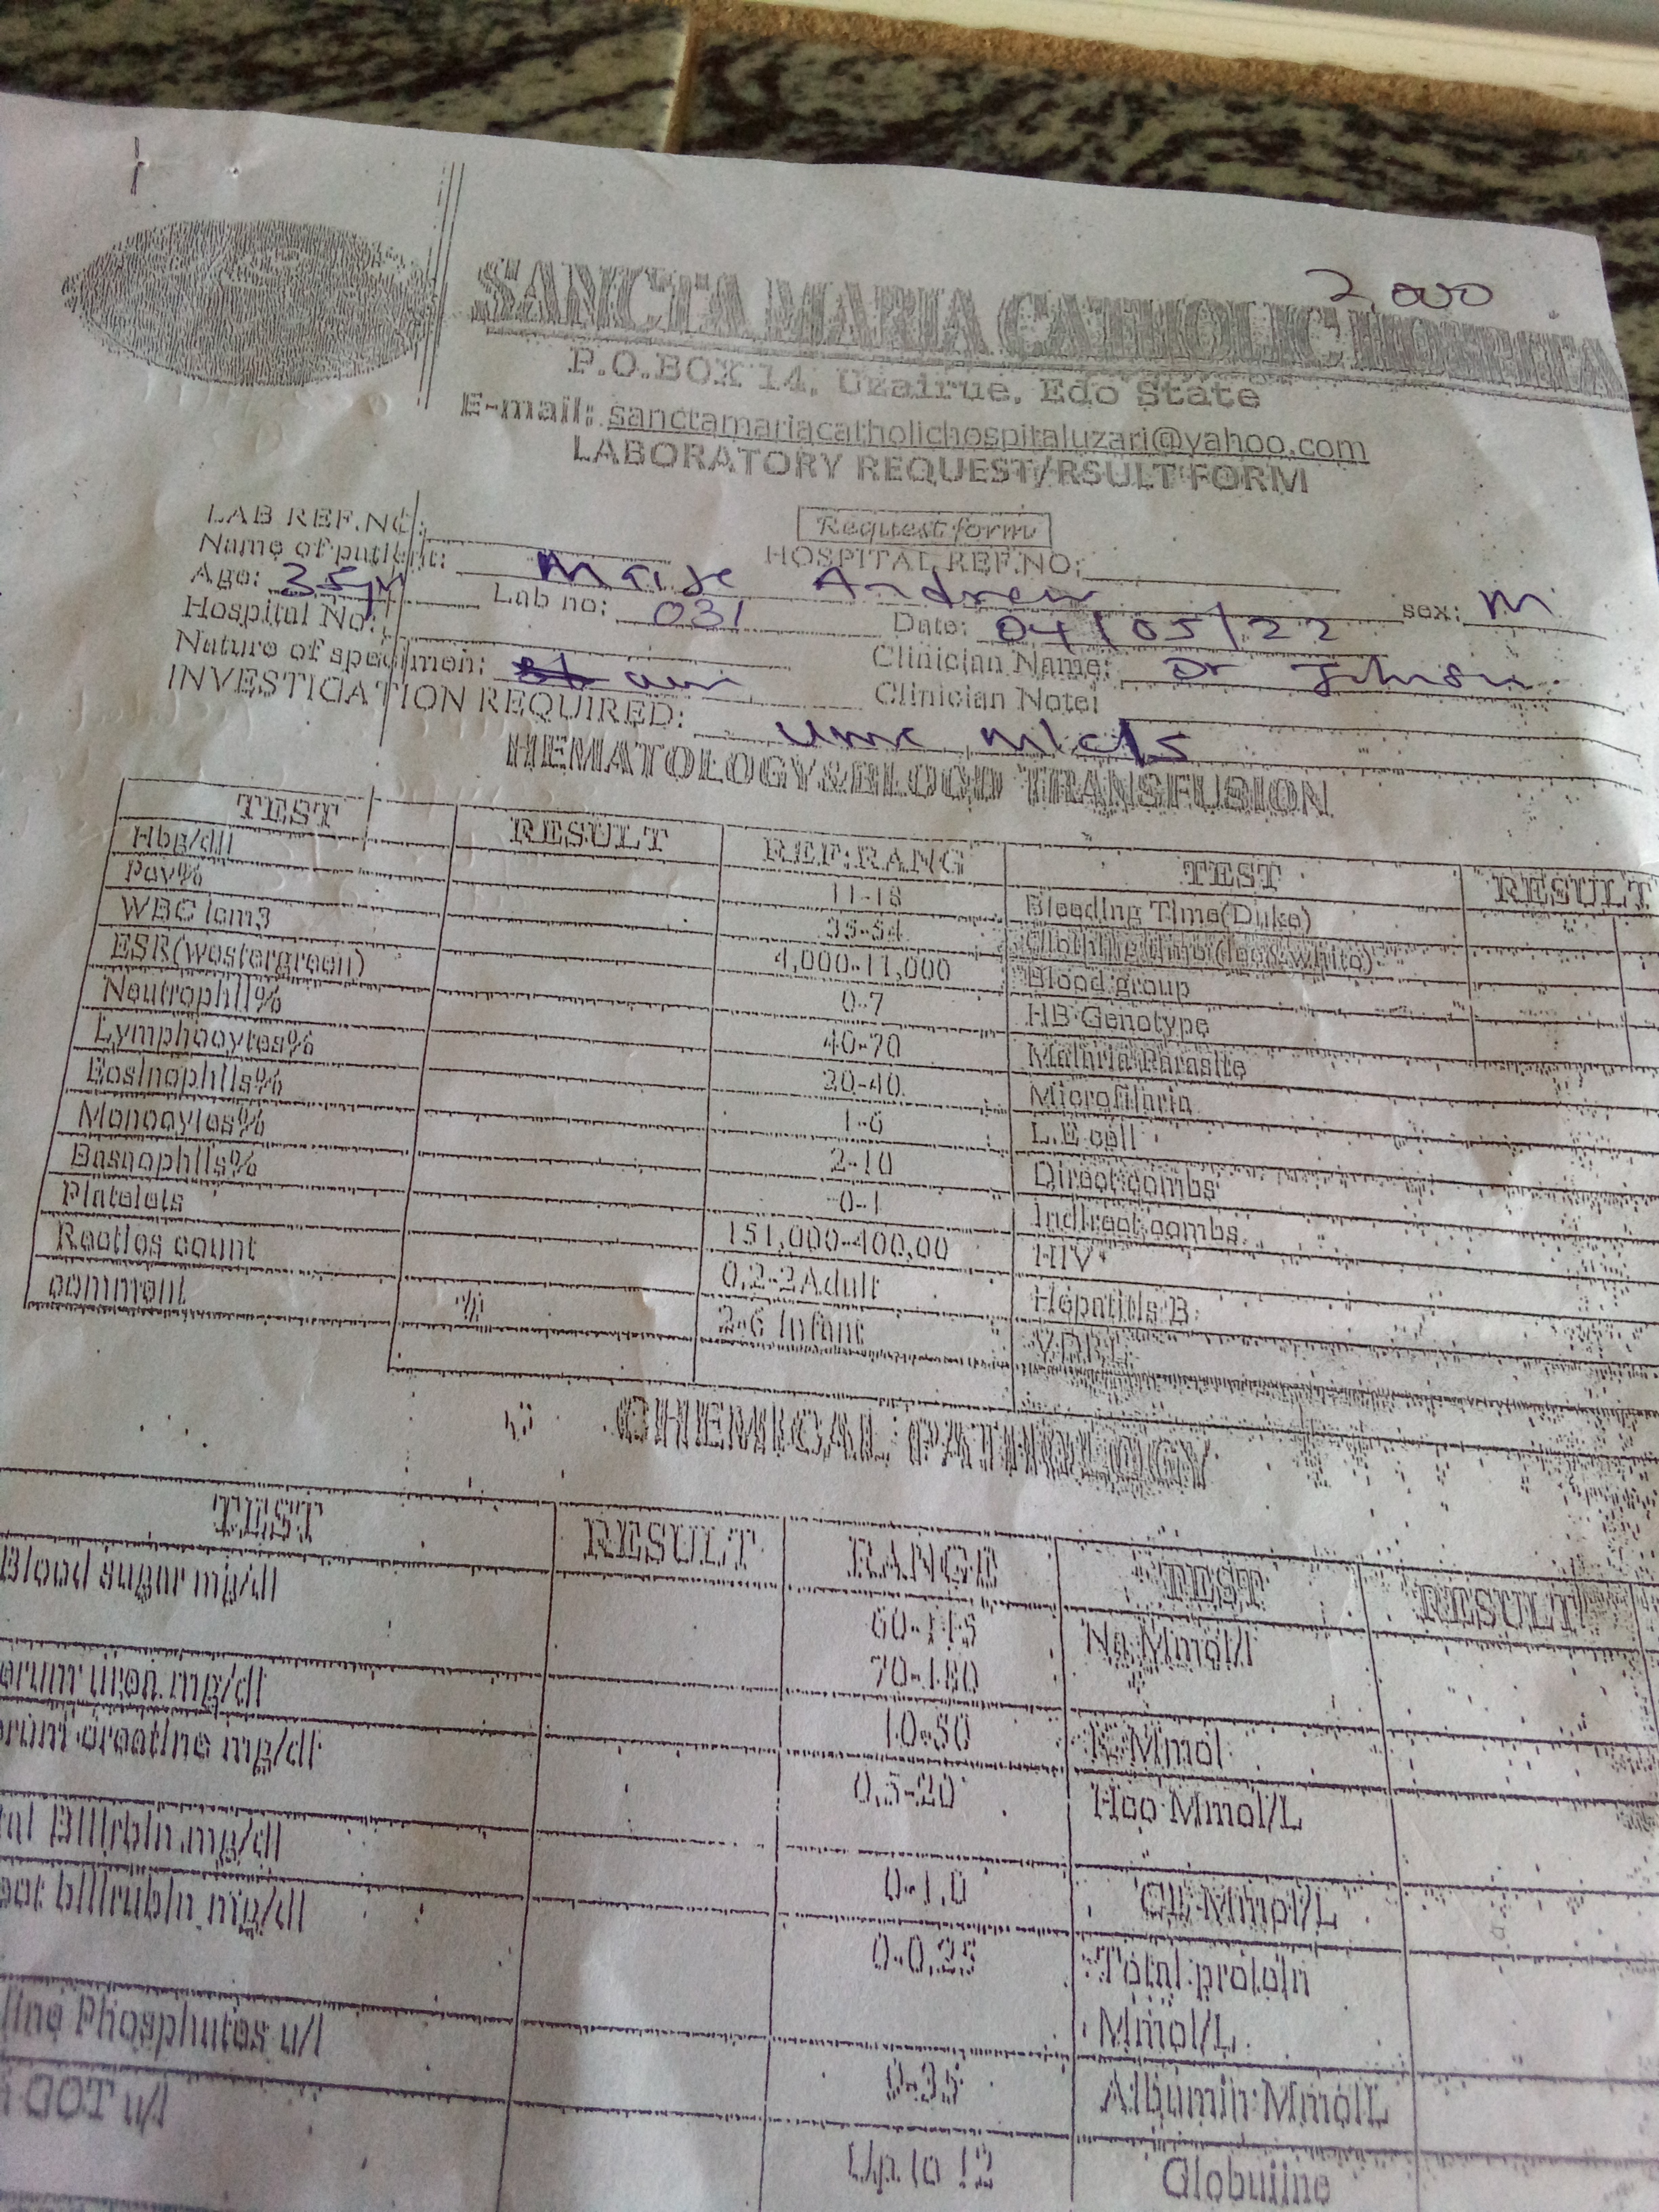 2,000
SANCTA MARIA CATHOLIC HOSPITA
P.O.BOX 14, Uzairue, Edo State
E-mail: sanctamariacatholichospitaluzari@yahoo.com
LABORATORY REQUEST/RSULT FORM
Request form
LAB REF.NO: HOSPITAL REF.NO:
Name of patient: Andrew sex: M
Age: 35yr Lab no: 031 Date: 04/05/22
Hospital No: Clinician Name: Dr Johnson
Nature of specimen: Clinician Note:
INVESTIGATION REQUIRED: Urine m/c/s
HEMATOLOGY&BLOOD TRANSFUSION
TEST RESULT REF:RANG TEST RESULT
Hbg/dll 11-18 Bleeding Time(Duke)
Pcv% 35-54
WBC lcm3 4,000-11,000 Blood group
ESR(westergreen) 0-7 HB Genotype
Neutrophll% 40-70 Malaria Parasite
Lymphocytes% 20-40 Microfilaria
Eosinophlls% 1-6 L.E cell
Monocytes% 2-10 Direct combs
Basnophlls% 0-1 Indlreet combs
Platelets 151,000-400,00 HIV
Reotlos count 0.2-2Adult Hepatitis B
comment % 2-6 Infant V.D.R.L
CHEMICAL PATHOLOGY
TEST RESULT RANGE TEST RESULT
Blood sugar mg/dl 60-115 Na Mmol/l
70-180
erum urea mg/dl 10-50 K Mmol
rum creatine mg/dl 0.5-20 Hco Mmol/L
al Bilirbln mg/dl 0-1.0 Mmol/L
blllrubln mg/dl 0-0.25 Total protein
Mmol/L
line Phosphates u/l 9-35 Albumin MmolL
GOT u/l Up to 12 Globuline